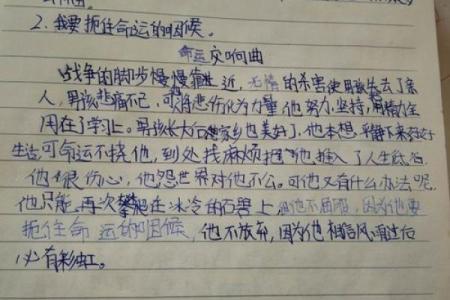 2.我要扼住命运的咽候。
命运交响曲
战争的脚步慢慢靠近,无情的杀害使男孩失去了亲
人,男孩悲痛不已,可将悲伤化为力量他努力.坚持,用精力全
用在了学习上。男孩长大后家乡也美好了,他本想平静下来好好
生活可命运不饶他,到处找麻烦把他推入了人生低谷.
他很伤心,他怨世界对他不公。可他又有什么办法呢,
他只能再次攀爬在冰冷的石壁上,但他不屈服,因为他要
扼住命运的咽候,他不放弃,因为他相信风雨过后
必有彩虹。